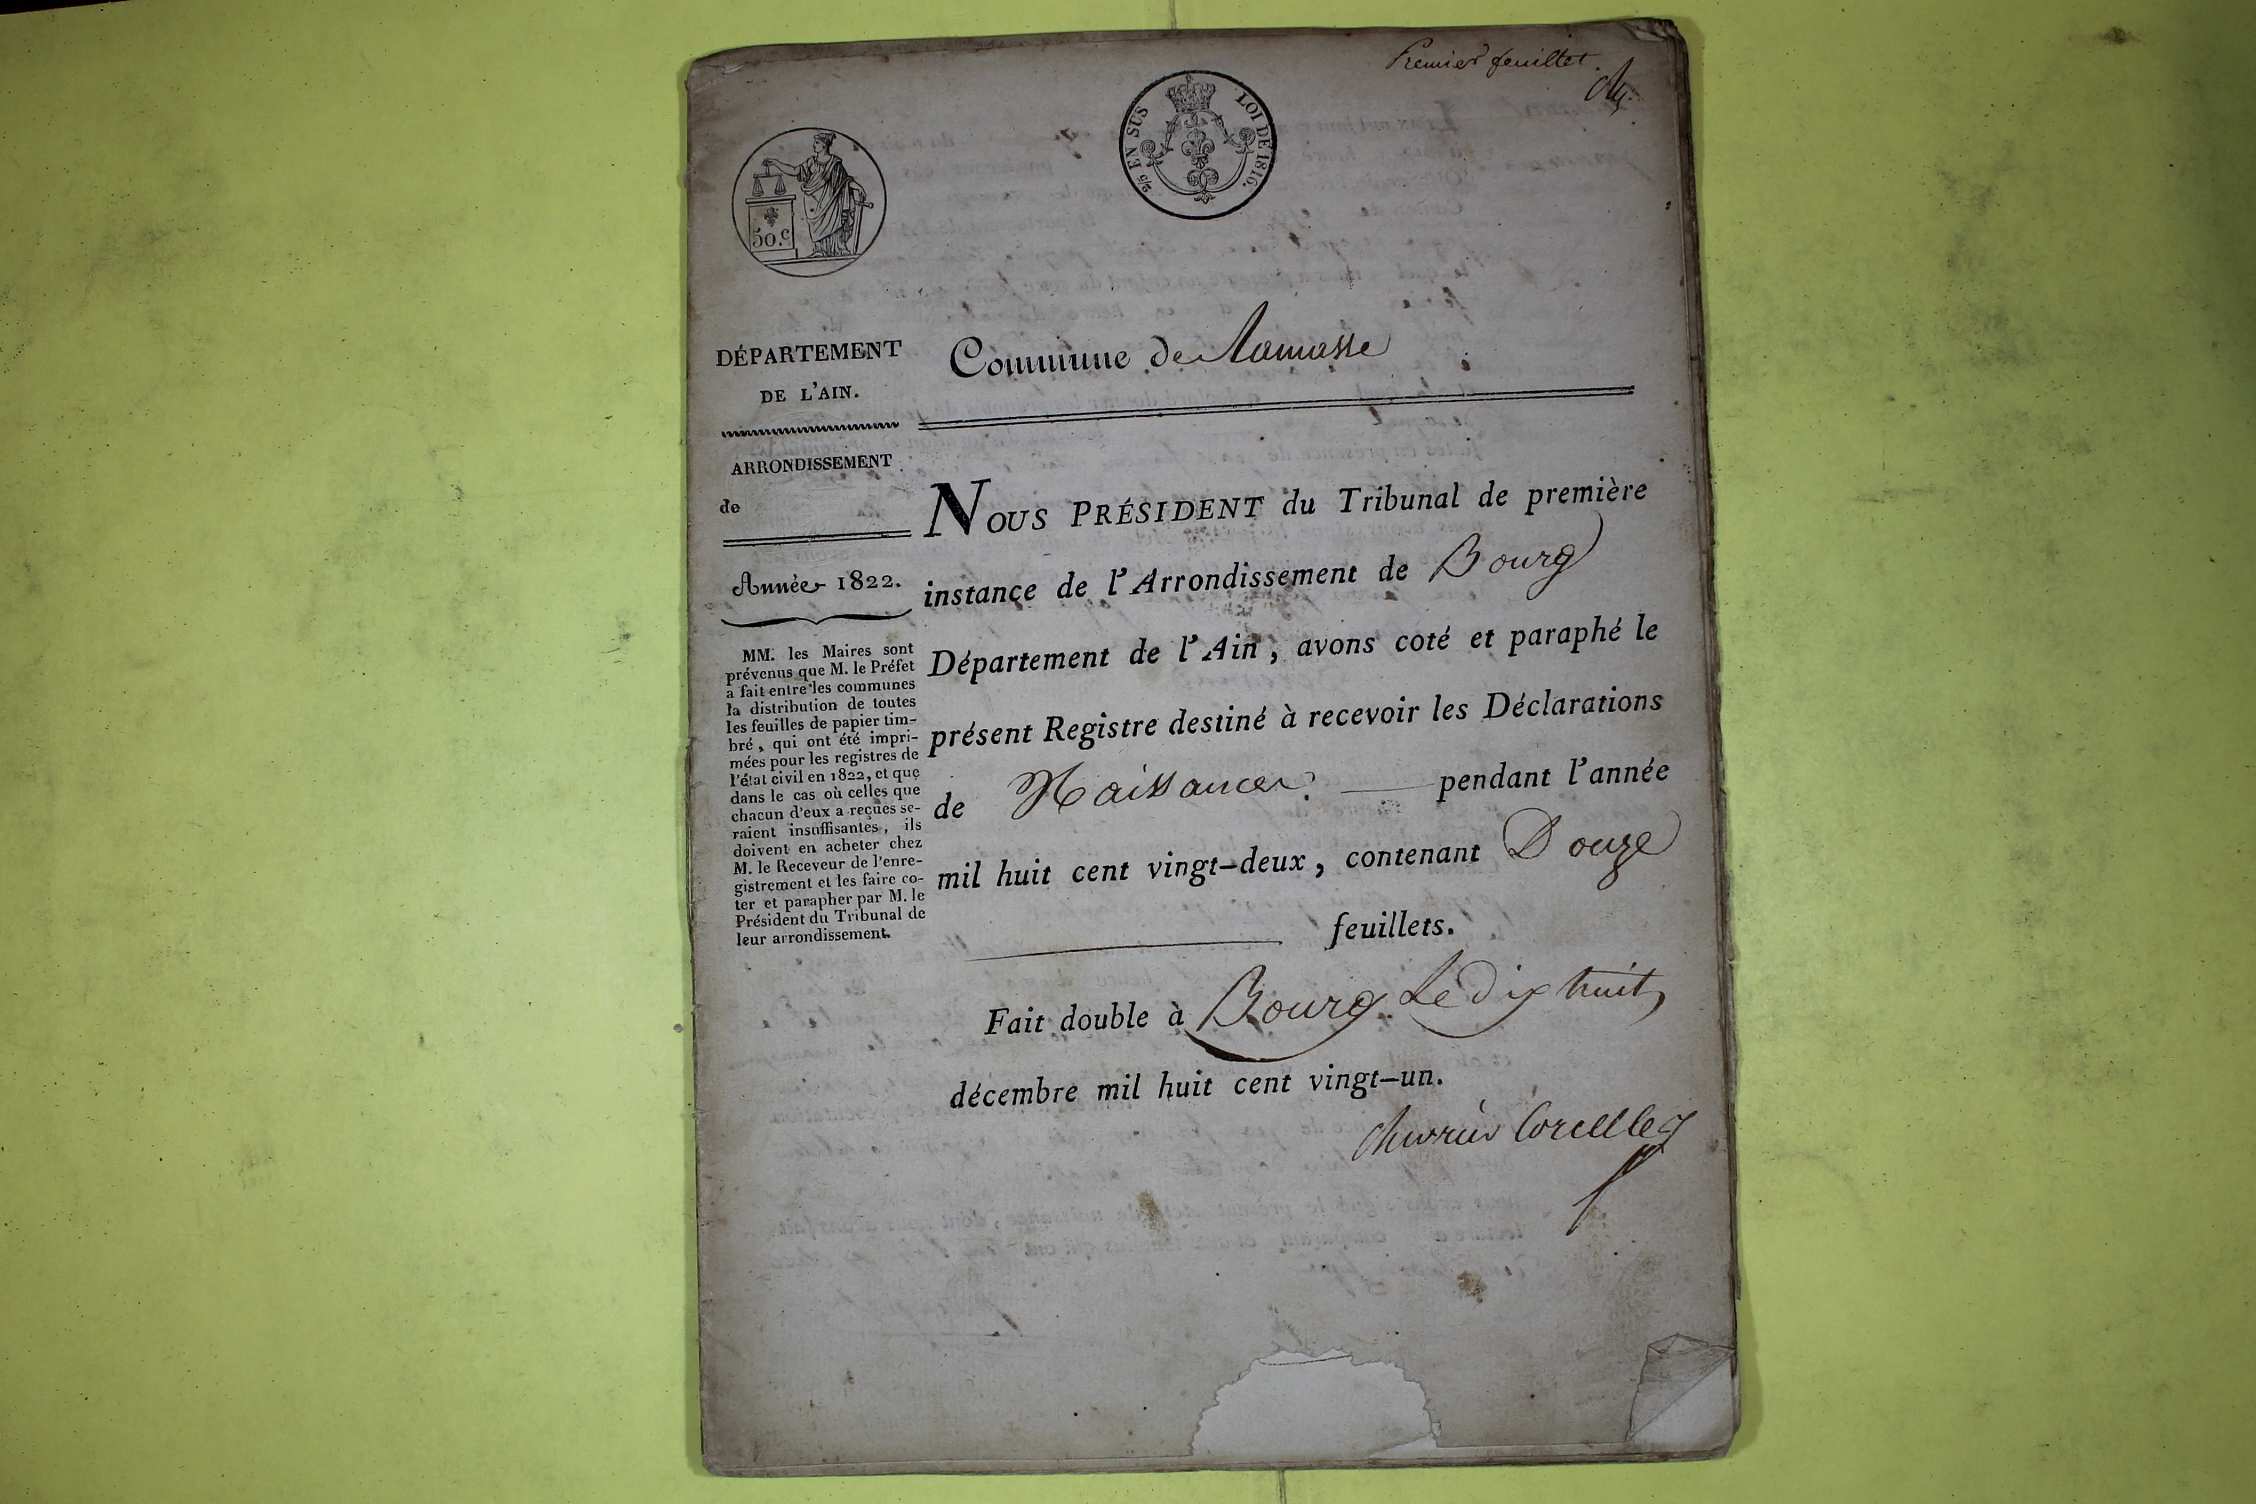 Premier feuillet.
2/5 EN SUS LOI DE 1816.
50.c
DÉPARTEMENT
DE L'AIN.
ARRONDISSEMENT
de
Année 1822.
MM. les Maires sont
prévenus que M. le Préfet
a fait entre les communes
la distribution de toutes
les feuilles de papier tim-
bré, qui ont été impri-
mées pour les registres de
l'état civil en 1822, et que
dans le cas où celles que
chacun d'eux a reçues se-
raient insuffisantes, ils
doivent en acheter chez
M. le Receveur de l'enre-
gistrement et les faire co-
ter et parapher par M. le
Président du Tribunal de
leur arrondissement.
Commune de Ramasse
NOUS PRÉSIDENT du Tribunal de première
instance de l'Arrondissement de Bourg
Département de l'Ain, avons coté et paraphé le
présent Registre destiné à recevoir les Déclarations
de Naissances. pendant l'année
mil huit cent vingt-deux, contenant Douze
feuillets.
Fait double à Bourg Le dix huit
décembre mil huit cent vingt-un.